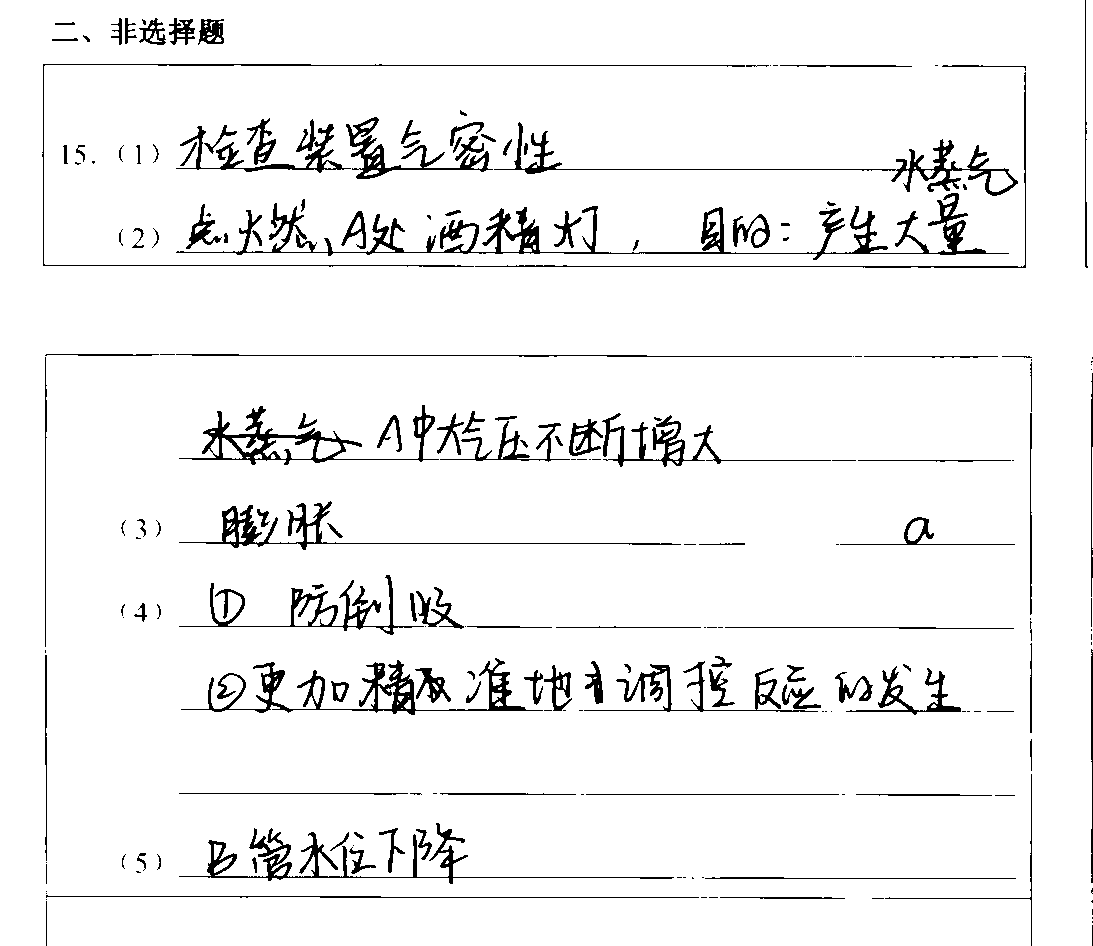 二、非选择题
15.（1）检查装置气密性
水蒸气
（2）点火燃A处酒精灯，目的：产生大量
水蒸气 A中大气压不断增大
（3）膨胀 a
（4）① 防倒吸
②更加精准地调控反应的发生
（5）B管水位下降